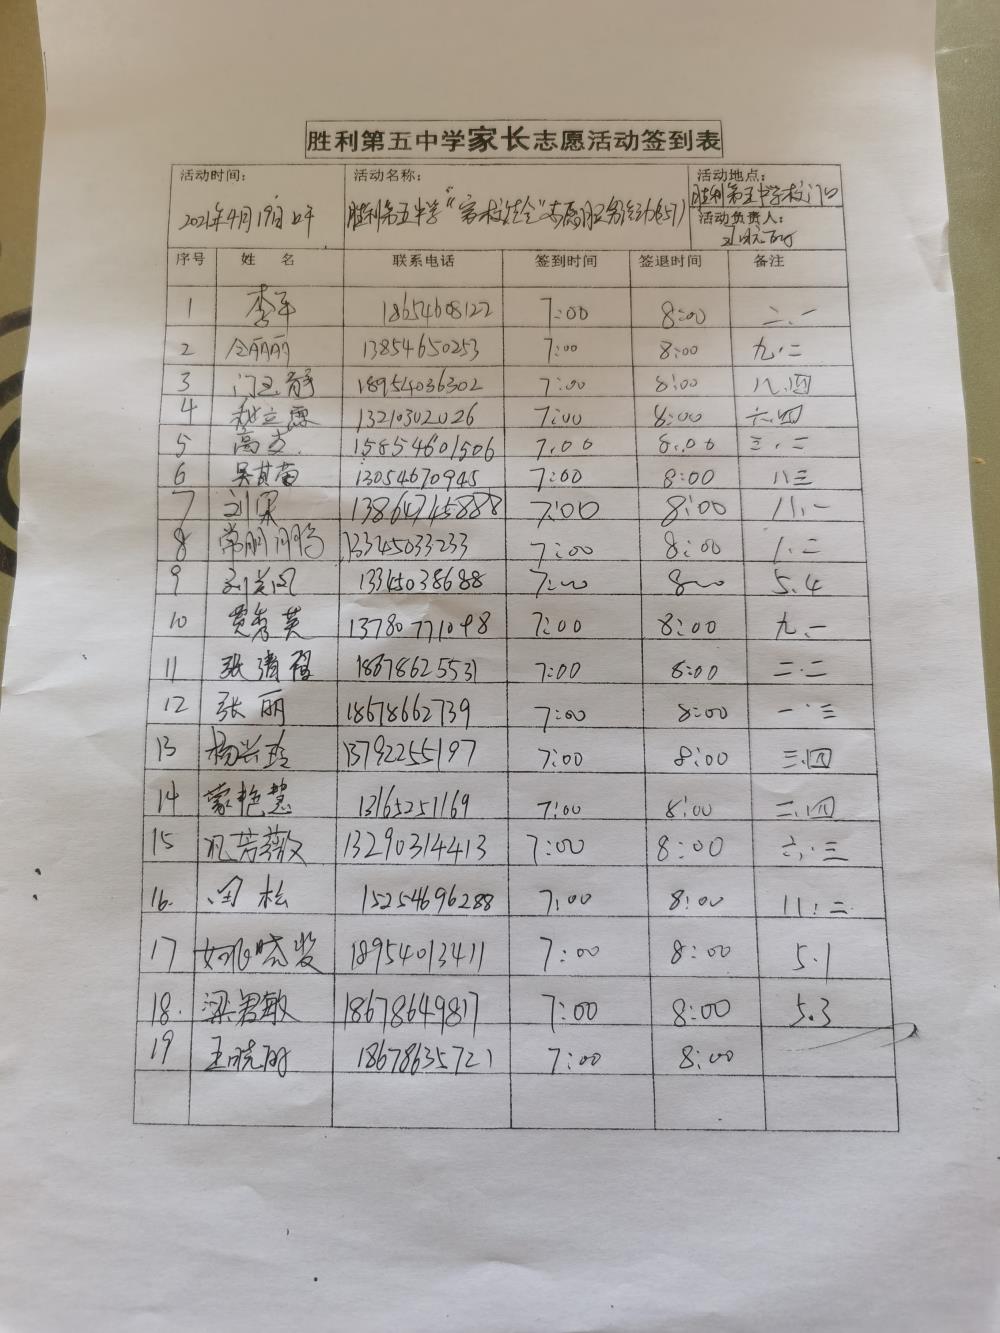 胜利第五中学家长志愿活动签到表
活动时间： 活动名称： 活动地点：
2021年4月19日 胜利第五中学“家校结合”志愿服务活动 胜利第五中学校门口
活动负责人：
王晓丽
序号 姓名 联系电话 签到时间 签退时间 备注
1 李平 18654608122 7:00 8:00 二.一
2 仝丽丽 13854650253 7:00 8:00 九.二
3 门玉静 18954036302 7:00 8:00 八.四
4 13210302026 7:00 8:00 六.四
5 高 15854601506 7:00 8:00 三.二
6 吴其苗 13054670945 7:00 8:00 八三
7 刘果 13864745888 7:00 8:00 八.一
8 常明 13345033233 7:00 8:00 1.二
9 刘美凤 13345038688 7: 8 5.4
10 贾秀英 13780771098 7:00 8:00 九.一
11 张清 18678625531 7:00 8:00 二.二
12 张丽 18678662739 7:00 8:00 一.三
13 杨兴玲 13792255197 7:00 8:00 三.四
14 蒙艳慧 13165251169 7:00 8:00 二.四
15 芳薇 13290314413 7:00 8:00 六.三
16. 田松 15254696288 7:00 8:00 八.二
17 姚晓 18954013411 7:00 8:00 5.1
18. 梁君敏 18678649817 7:00 8:00 5.3
19 王晓丽 18678635721 7:00 8:00